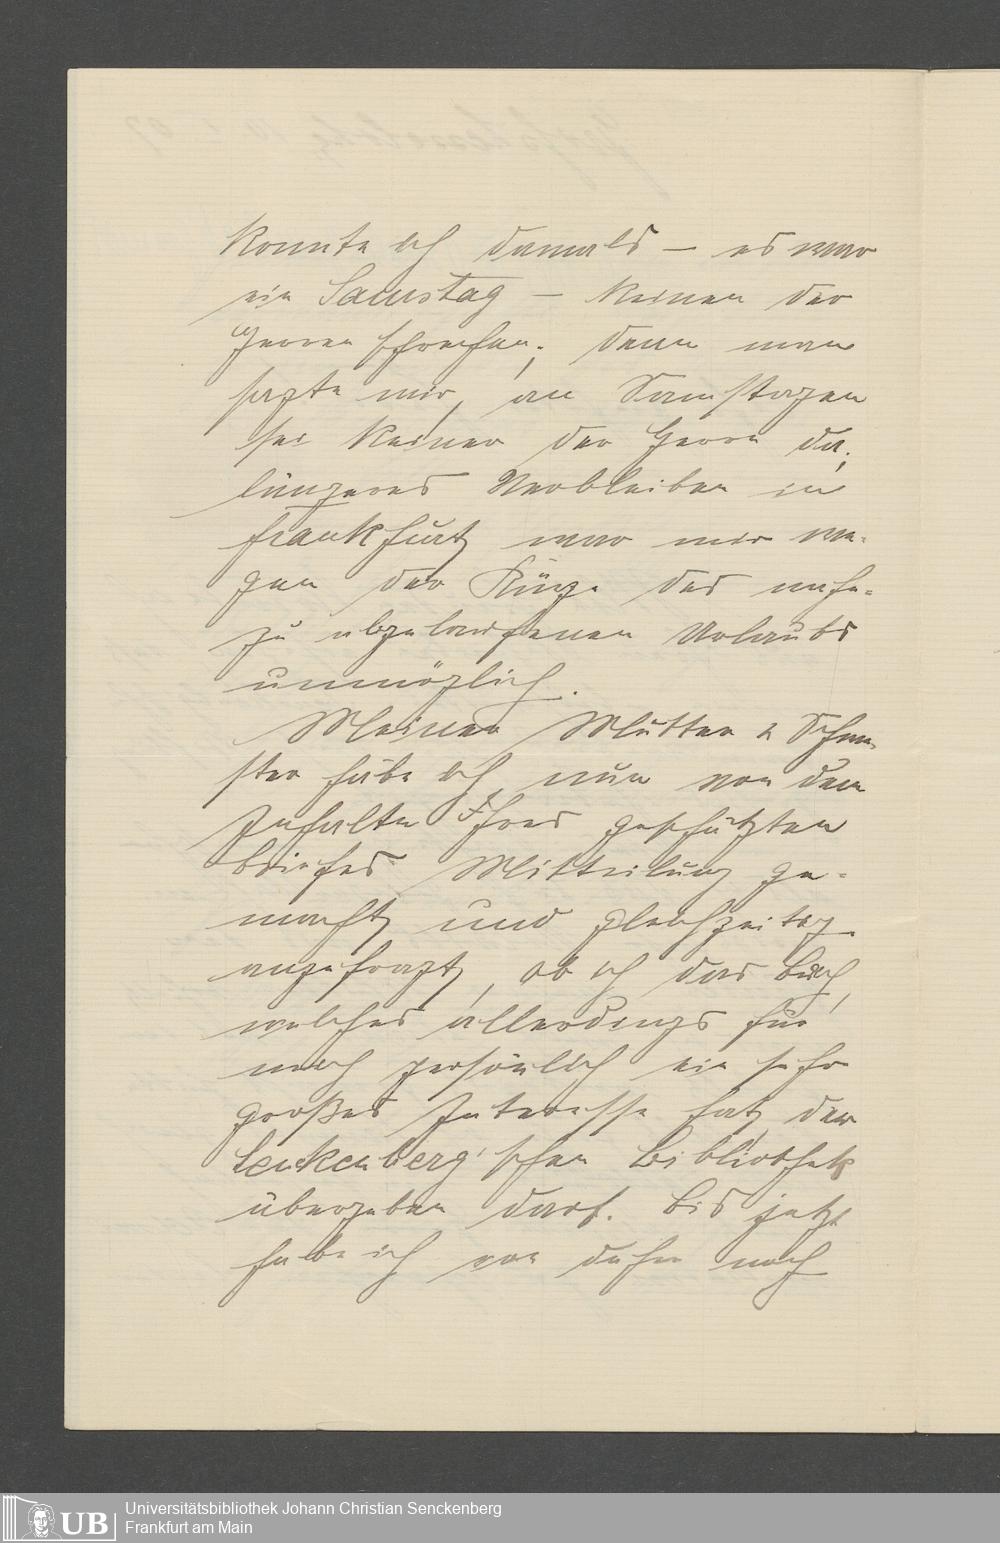 konnte ich damals – es war
ein Samstag – keinen der
Herren sprechen; denn man
sagte mir, an Samstagen
sei keiner der Herrn da;
längeres Verbleiben in
Frankfurt war mir we-
gen der Kürze des nahe-
zu abgelaufenen Urlaubs
unmöglich.
Meiner Mutter u Schwe-
ster habe ich nun von dem
Inhalte Ihres geschätzten
Briefes Mitteilung ge-
macht und gleichzeitig
angefragt, ob ich das Buch,
welches allerdings für
mich persönlich ein sehr
großes Interesse hat, der
Senkenberg'schen Bibliothek
übergeben darf. Bis jetzt
habe ich von daher noch
UB
Universitätsbibliothek Johann Christian Senckenberg
Frankfurt am Main